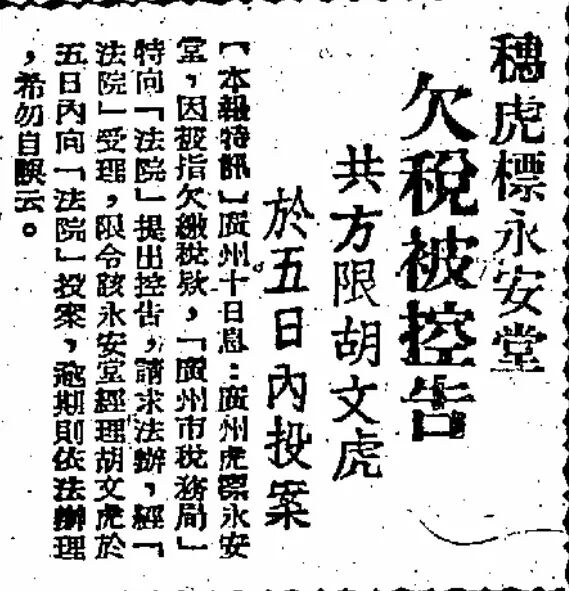 穗虎標永安堂
欠稅被控告
共方限胡文虎
於五日內投案
【本報特訊】廣州十日息：廣州虎標永安
堂，因被指欠繳稅欵，「廣州市稅務局」
特向「法院」提出控告，請求法辦，經「
法院」受理，限令該永安堂經理胡文虎於
五日內向「法院」投案，逾期則依法辦理
，希勿自誤云。